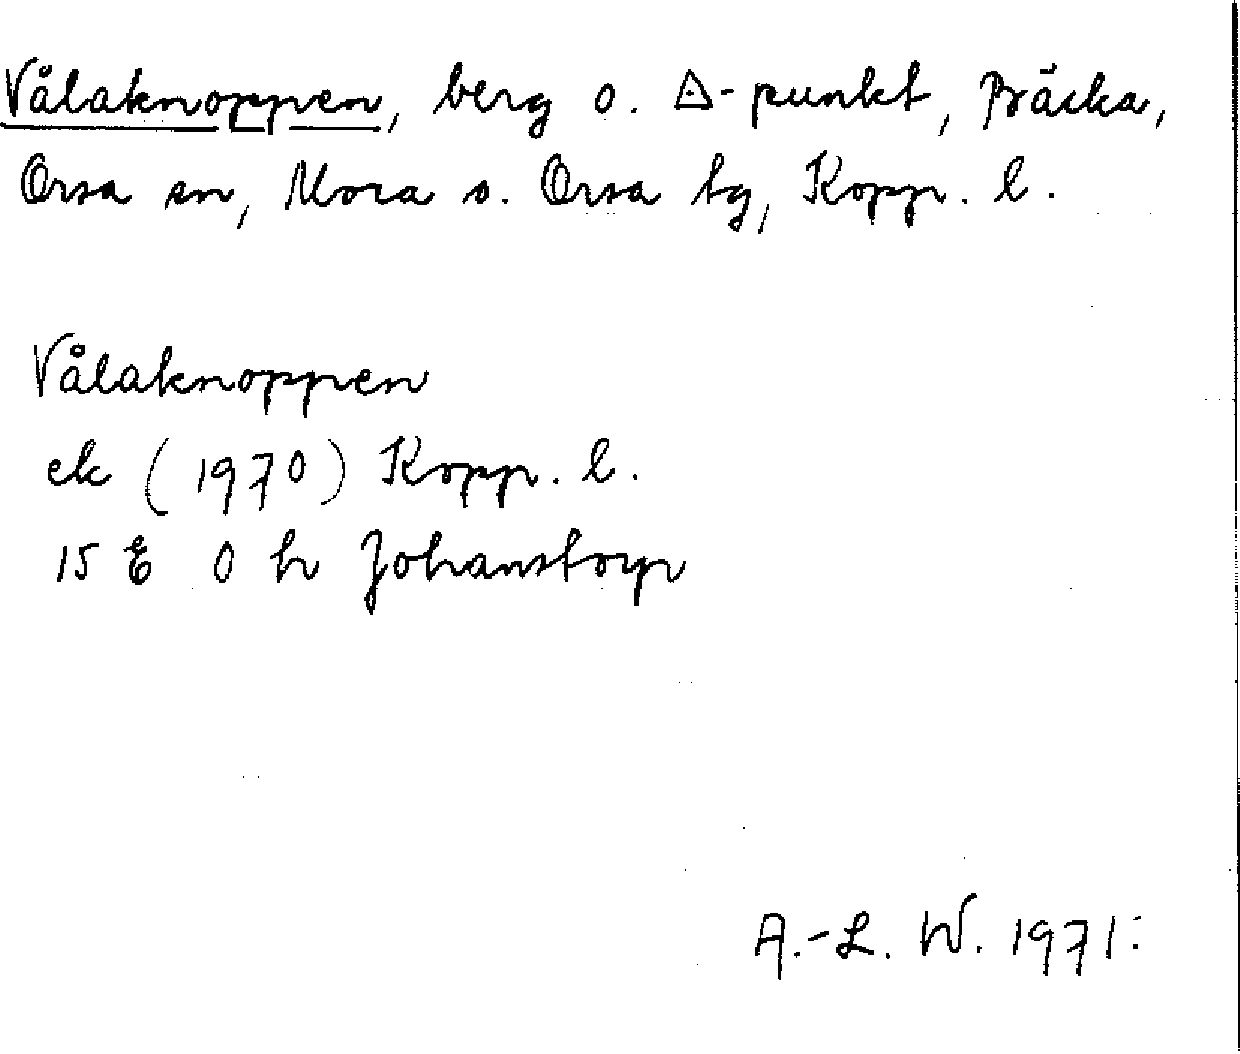 Vålaknoppen, berg o. △-punkt, Bräcka,
Orsa sn, Mora o. Orsa tg, Kopp. l.
Vålaknoppen
ek (1970) Kopp. l.
15 E 0 h Johanstorp
A.-L. W. 1971.